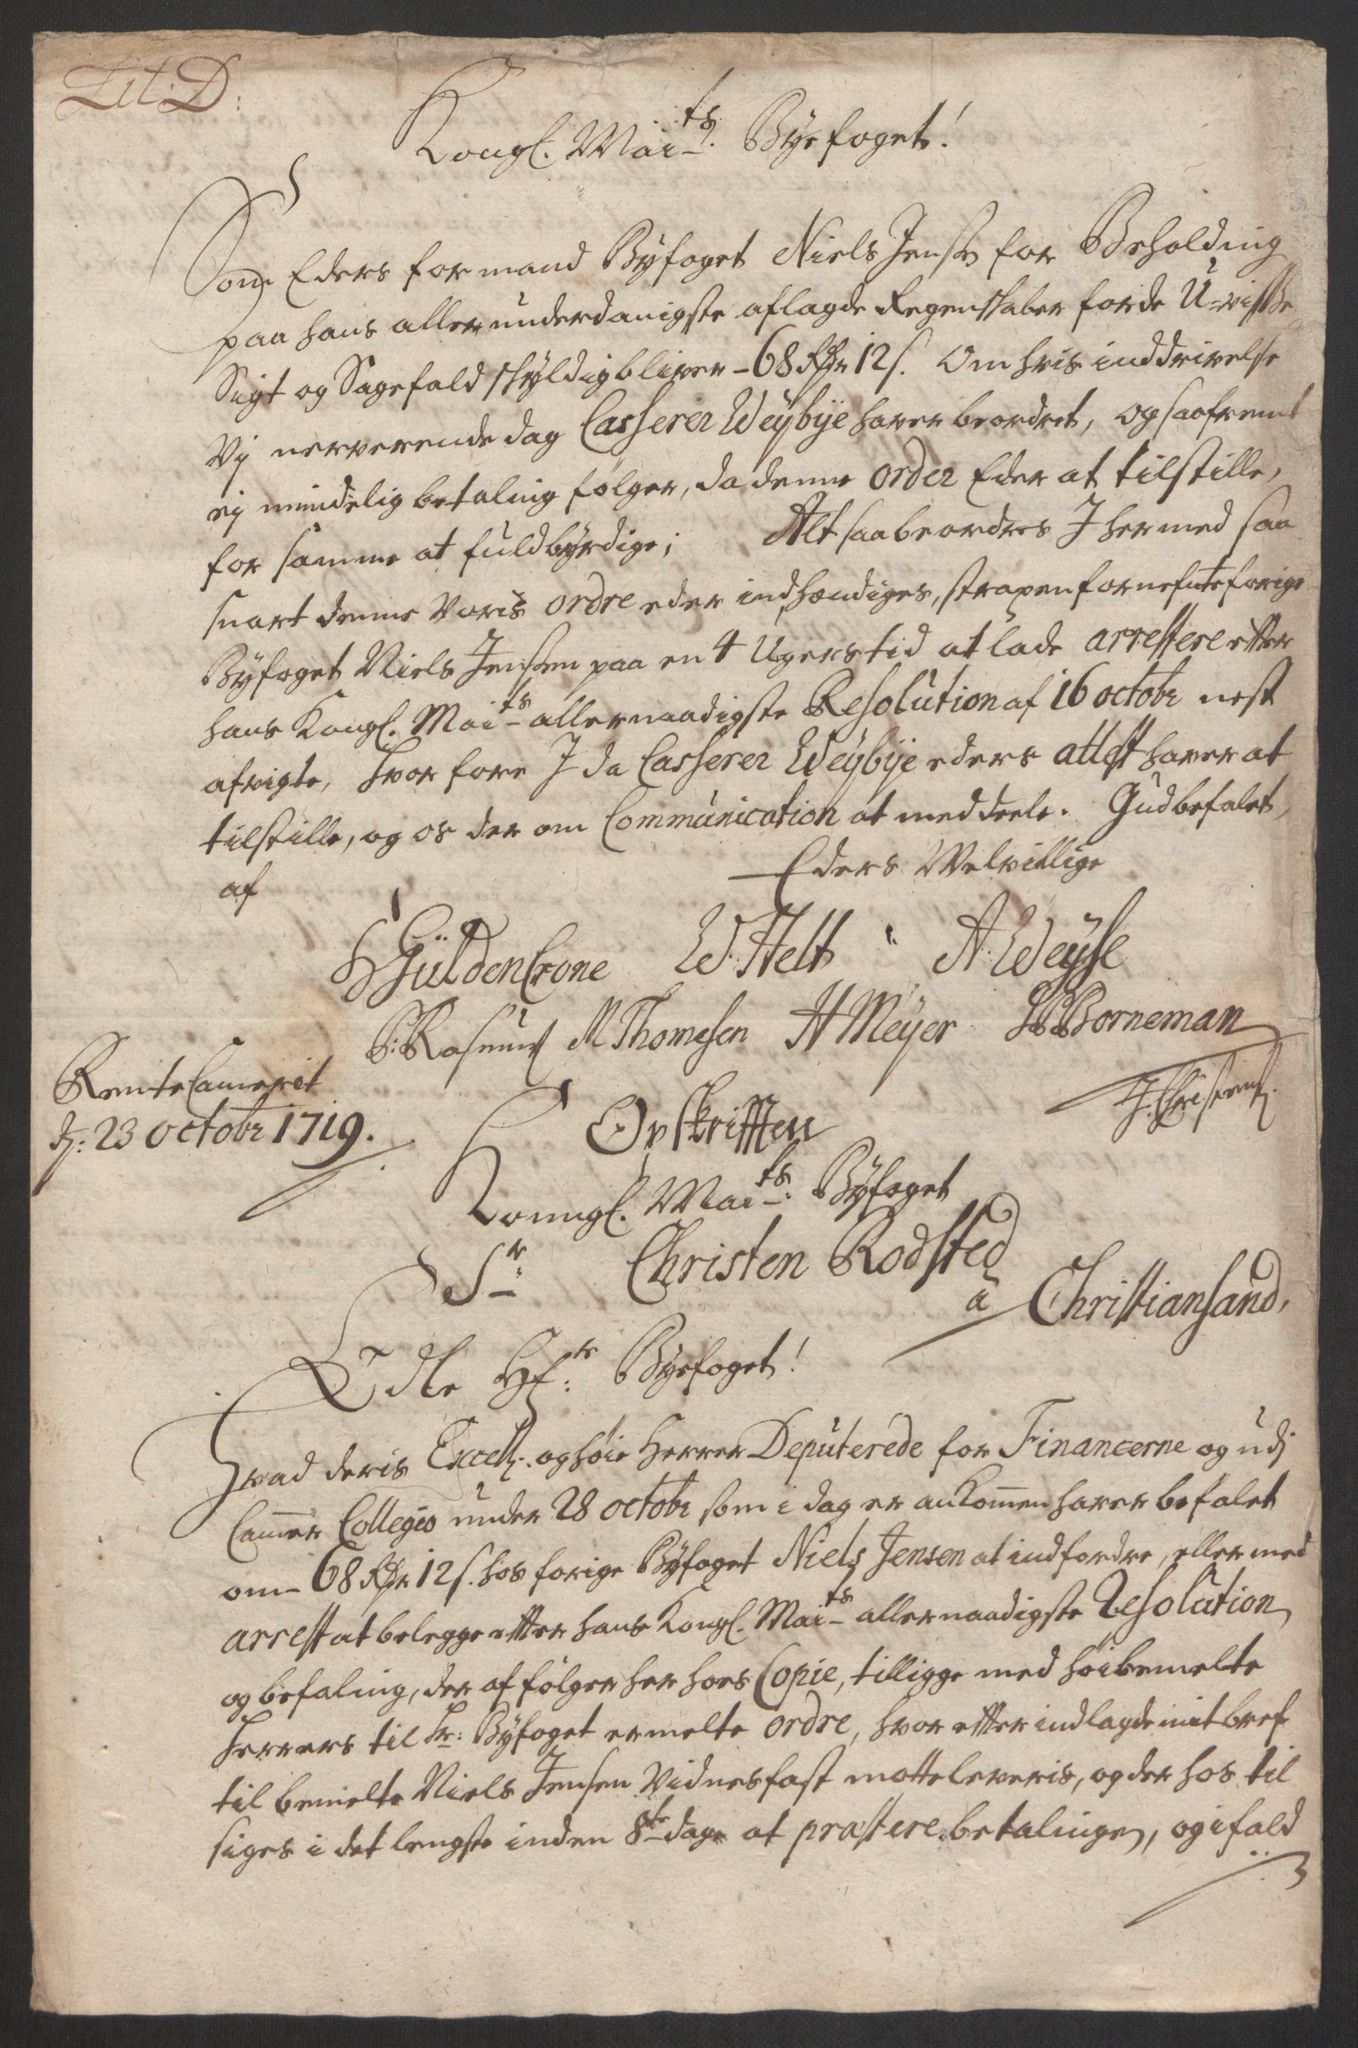 Lit: D:
Kongl. Mai^ts. Byefoget!
Som Eders formand Byfoget Niels Jensen for Beholding
paa hans allerunderdanigste aflagde Regenskaber for de U-visse
Sigt og Sagefald skyldig bliver - 68 Rdr 12 s. Om hvis inddrivelse
Vj nerverende dag Casserer Weybye haver beordret, og saafremt
ej mindelig betaling følger, da denne order Eder at tilstille,
for samme at fuldbyrdige; Alt saa beordres I hermed saa
snart denne Voris ordre eder indhændiges, strax en fornefnte forige
Byfoget Niels Jensen paa en 4 Ugers tid at lade arrestere efter
hans Kongl. Mai^ts allernaadigste Resolution af 16 octobr nest
afvigte, hvor fore I da Casserer Weybye eders attest haver at
tilstille, og os der om Communication at meddeele. Gud befalet,
af Eders Welvillige
H Güldencrone W. Helt A. Weyse
P: Rasmus M Thomesen H Meyer HP Borneman
RenteCameret
d: 23 octobr 1719.
J. Christens.
Opskrifften
Konngl. Mai^ts: Byfoget
S^r: Christen Rodsted
a Christiansand,
Edle Hr^r: Byefoget!
Hvad deris Excell. og høie Herrer Deputerede for Financerne og udj
Cammer Collegio under 28 octobr som i dag er ankommen haver befalet
om - 68 Rdr 12 s. hos forige Byfoget Niels Jensen at indfordre, eller med
arrest at belegge efter hans Kongl. Mai^ts allernaadigste Resolution
og befaling, der af følger her hoes Copie, tillige med høibemelte
Herrers til Hr: Byfoget ermelte ordre, hvor efter indlagde mit bref
til bemelte Niels Jensen Vidnesfast motte leveris, og der hos til
siges i det lengste inden 8^te dage at præstere betalingen, og ifald